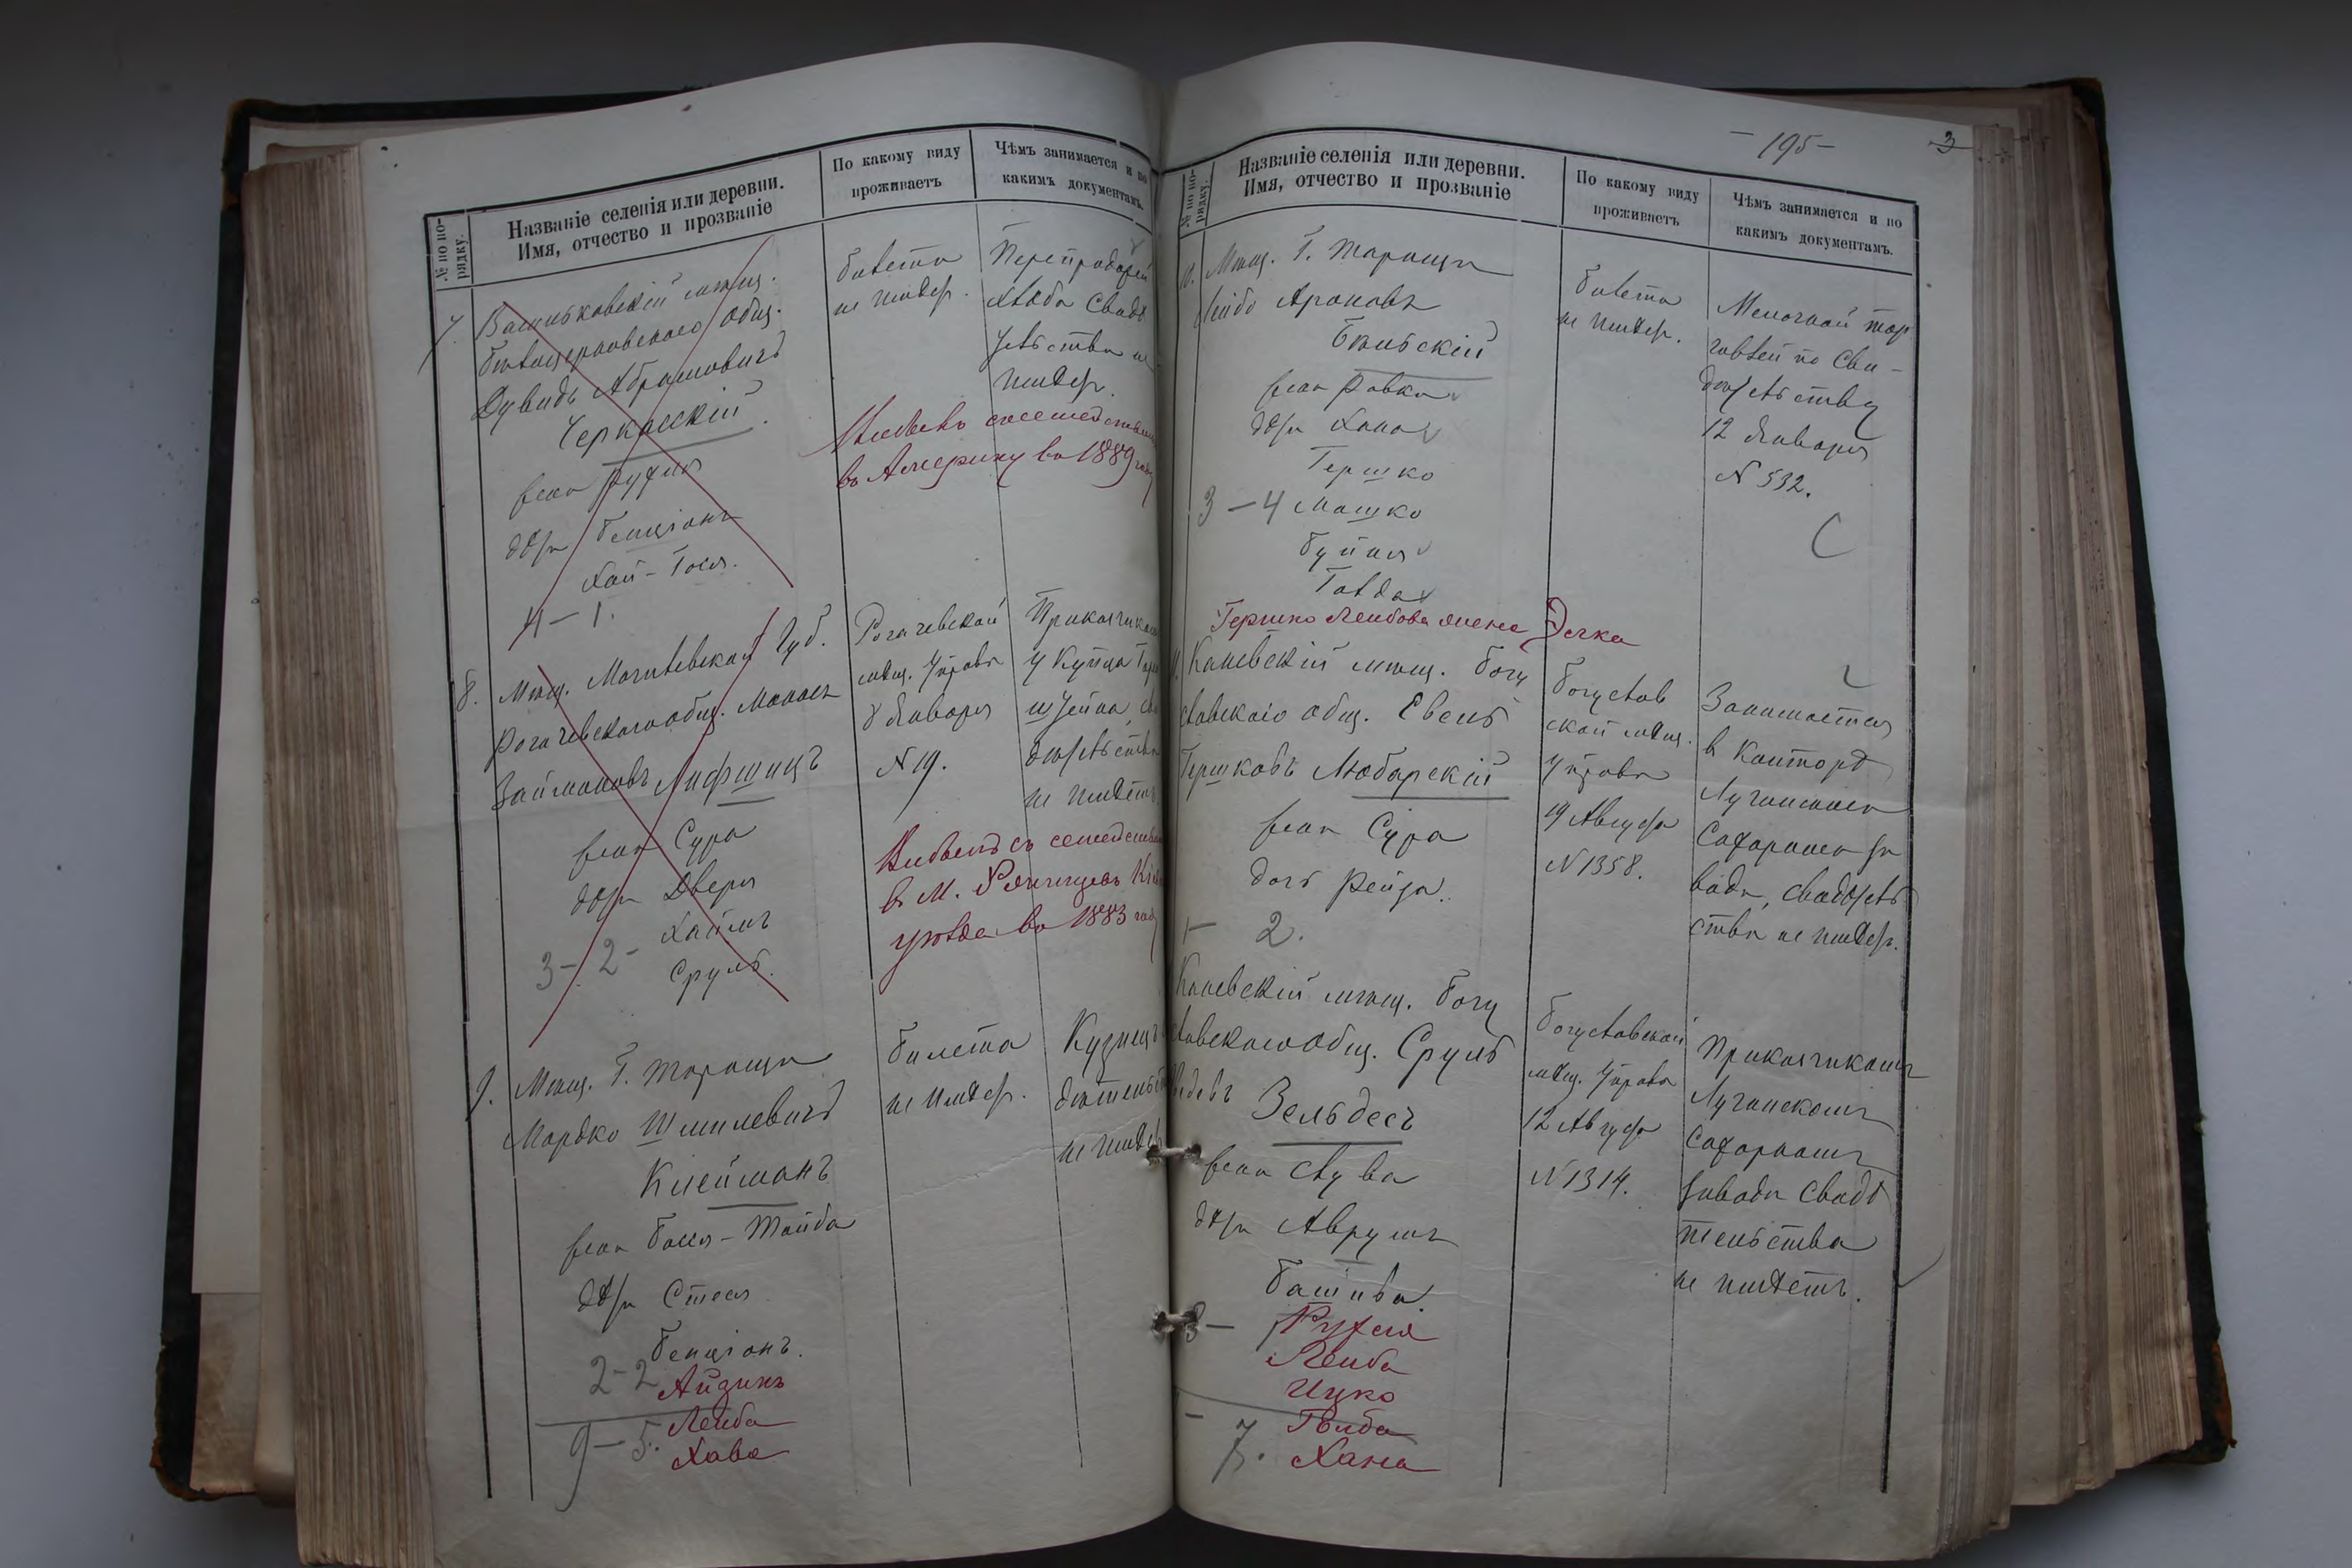 № по по-
рядку.
Названіе селенія или деревни.
Имя, отчество и прозваніе
По какому виду
проживаетъ
Чѣмъ занимается и по
какимъ документамъ.
7. Васильковскій мѣщ.
Бѣлоцерковского общ.
Дувидъ Абрамовичъ
Черкасскій
жена
дѣти Бенціонъ
Хай-Тося.
4-1.
билета
не имѣетъ.
Перепродажей
хлѣба Свидѣ
тельства не
имѣетъ.
Выбылъ съ семейством
въ Америку въ 1889 году
8. Мѣщ. Могилевской Губ.
Рогачевского общ. Манасъ
Займановъ Лифшицъ
жена Сура
дѣти Двера
Хаимъ
3-2- Сруль.
Рогачевской
мѣщ. Управы
8 Января
N 19.
Прикащикомъ
у Купца
не имѣетъ
Выбылъ съ семейством
въ М.
уѣзда въ 1883 году
9. Мѣщ. Г. Таращи
Мордко Шмилевичъ
Клейманъ
жена Бася-Тойба
дѣти Стася
Бенціонъ.
2-2 Айзикъ
Лейба
9-5. Хава
билета
не имѣетъ.
Кузнецъ
не имѣетъ
-195-
3
№ по по-
рядку.
Названіе селенія или деревни.
Имя, отчество и прозваніе
По какому виду
проживаетъ
Чѣмъ занимается и по
какимъ документамъ.
10. Мѣщ. Г. Таращи
Лейба Ароновъ
жена Ривка
дѣти Хана
Гершко
3-4 Мошко
Буйна
Голда
Гершко Лейбова жена
билета
не имѣетъ.
Мелочной тор
говлей по Сви-
дѣтельству
12 Января
N 532.
Каневскій мѣщ. Богу
славского общ. Евель
Гершковъ Любарскій
жена Сура
дочь Рейза.
1- 2.
Богуслав
ской мѣщ.
Управы
19 Августа
N 1358.
Занимается
в Конторѣ
Лучанского
Сахарного за
вода, свидѣтель
ства не имѣетъ.
Каневскій мѣщ. Богу
славского общ. Сруль
Зельдесъ
жена Слува
дѣти Аврумъ
Башива.
Рухля
Лейба
Ицко
Голда
7. Хана
Богуславской
мѣщ. Управы
12 Августа
N 1314.
Прикащикомъ
Лучанскомъ
Сахарномъ
заводѣ Свидѣ
тельства
не имѣетъ.